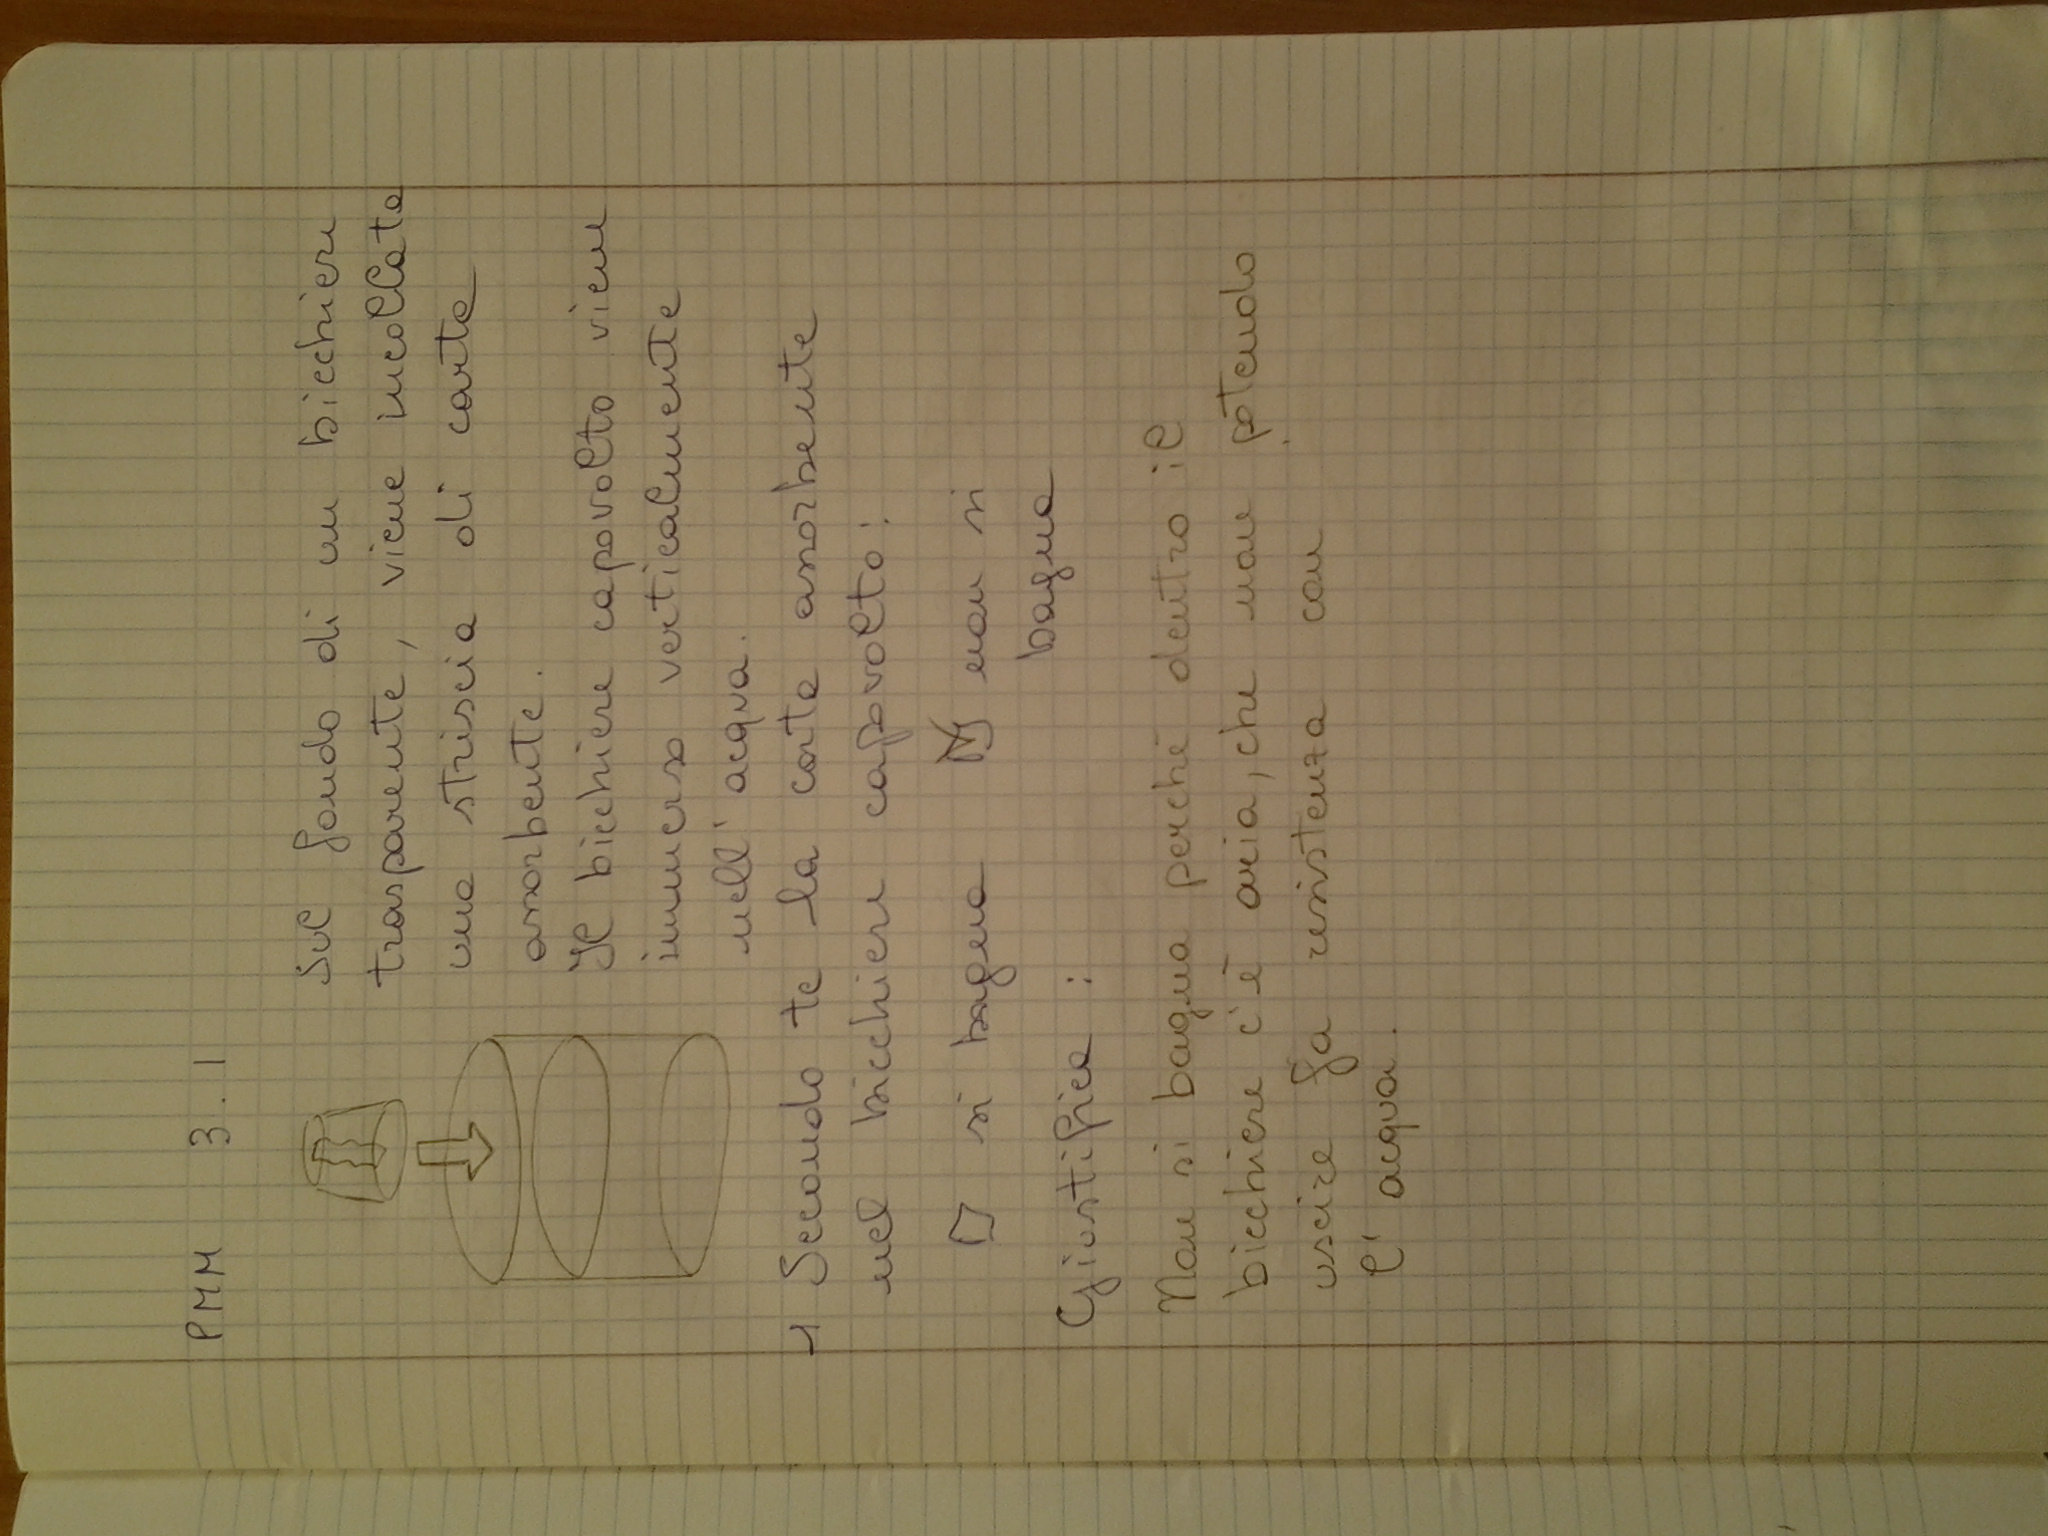 PMM 3.1
Sul fondo di un bicchiere
trasparente, viene incollata
una striscia di carta
assorbente.
Il bicchiere capovolto viene
immerso verticalmente
nell'acqua.
1 Secondo te la carta assorbente
nel bicchiere capovolto:
si bagna non si
bagna
Giustifica:
Non si bagna perché dentro il
bicchiere c'è aria, che non potendo
uscire fa resistenza con
l'acqua.